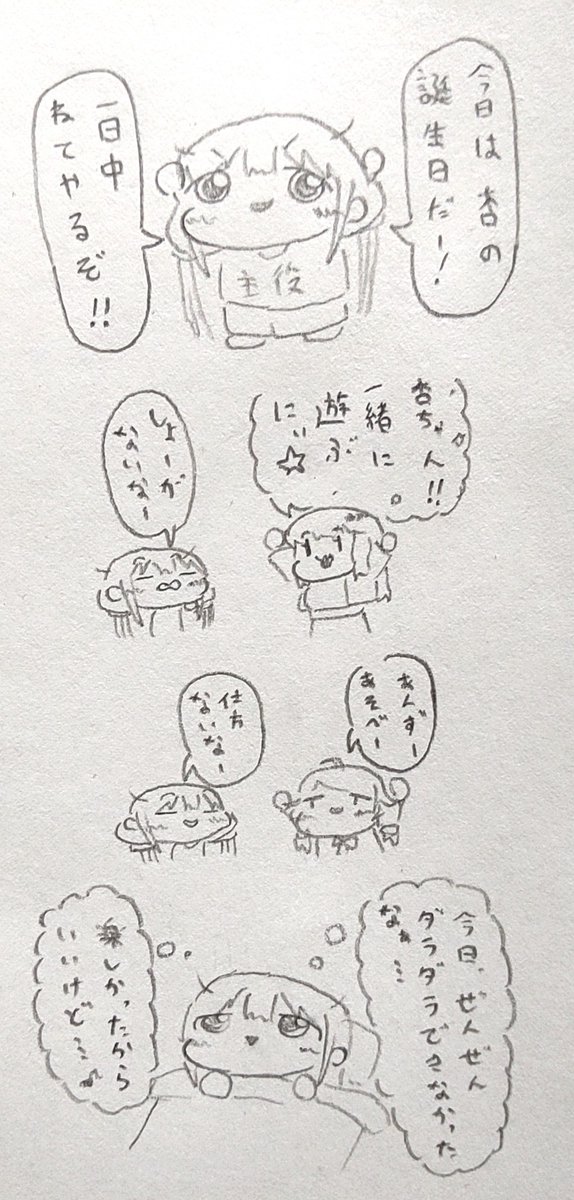 今日は杏の
誕生日だー!
一日中
ねてやるぞ!!
主役
杏ちゃん!!
一緒に
遊ぶ
にぃ☆
しょーが
ないなー
あんずー
あそべー
仕方
ないなー
今日、ぜんぜん
ダラダラできなかった
なぁ…
楽しかったから
いいけど…♪